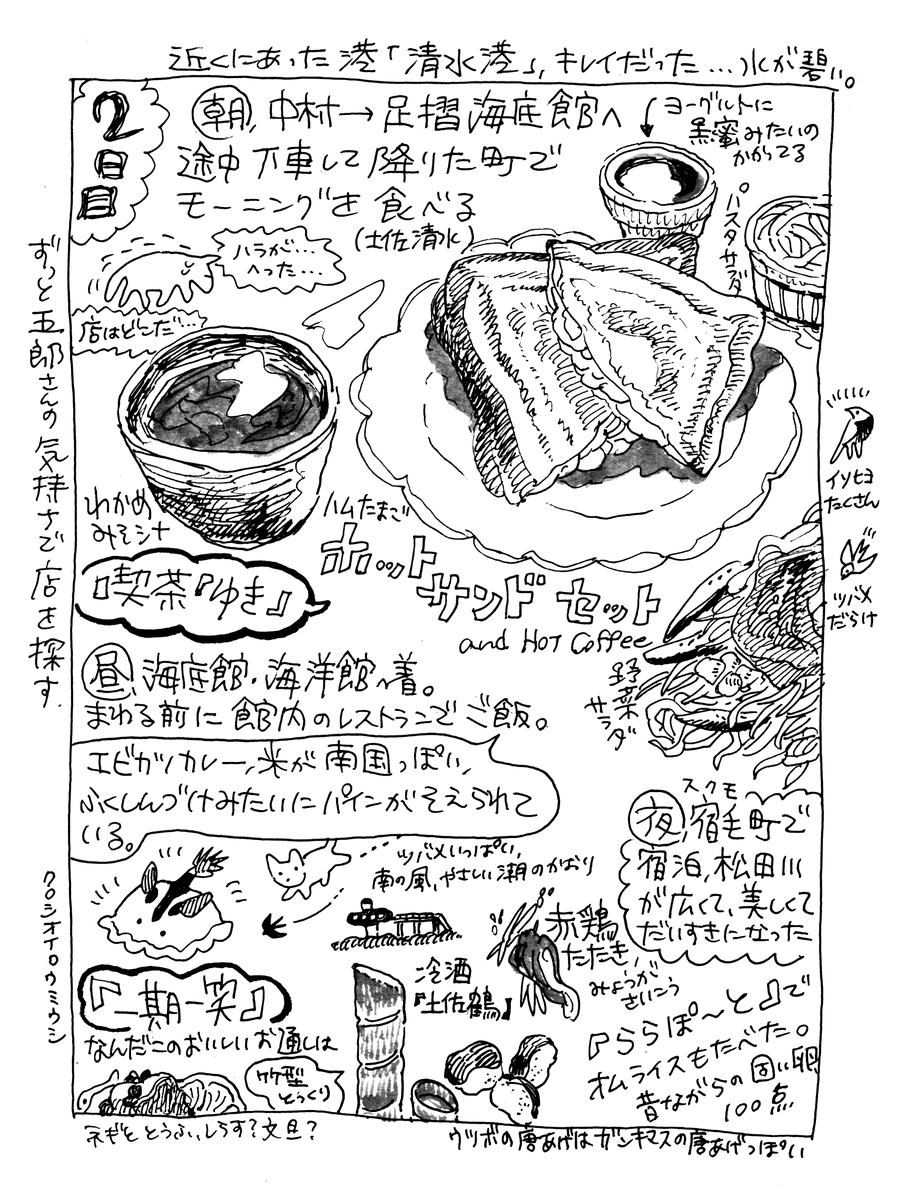 近くにあった港「清水港」、キレイだった…水が碧い。
2日目
朝、中村→足摺海底館へ
途中下車して降りた町で
モーニングを食べる
(土佐清水)
ヨーグルトに
黒蜜みたいの
かかってる
パスタサラダ
ハラが…
へった…
店はどこだ…
ずっと五郎さんの気持ちで店を探す.
わかめ
みそシナ
ハムたまご
ホット
サンドセット
and HOT Coffee
喫茶『ゆき』
イソヒヨ
たくさん
ツバメ
だらけ
野菜
サラダ
昼、海底館・海洋館へ着。
まわる前に館内のレストランでご飯。
エビカツカレー、米が南国っぽい、
ふくしんづけみたいにパインがそえられて
いる。
ツバメいっぱい、
南の風、やさしい潮のかおり
クロシオイロウミウシ
スクモ
夜、宿毛町で
宿泊、松田川
が広くて、美しくて
だいすきになった
『一期一笑』
なんだこのおいしいお通しは
竹型
とっくり
冷酒
『土佐鶴』
赤鶏
たたき、
みょうが、
さいこう
『ららぽ〜と』で
オムライスもたべた。
昔ながらの固い卵
100点
ネギととうふ、しらす?文旦?
ウツボの唐あげはガンキマスの唐あげっぽい